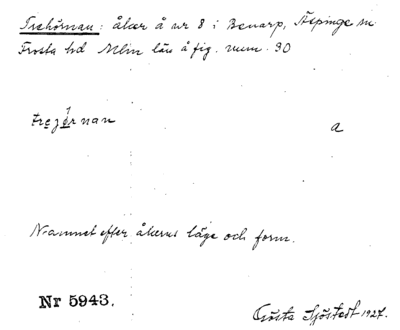 Trehörnan: åker å nr 8 i Benarp, Äspinge sn
Frosta hd Mlm län å fig. num. 90
trejörnan
a
Namnet efter åkerns läge och form.
Nr 5943.
Gösta Sjöstedt 1927.